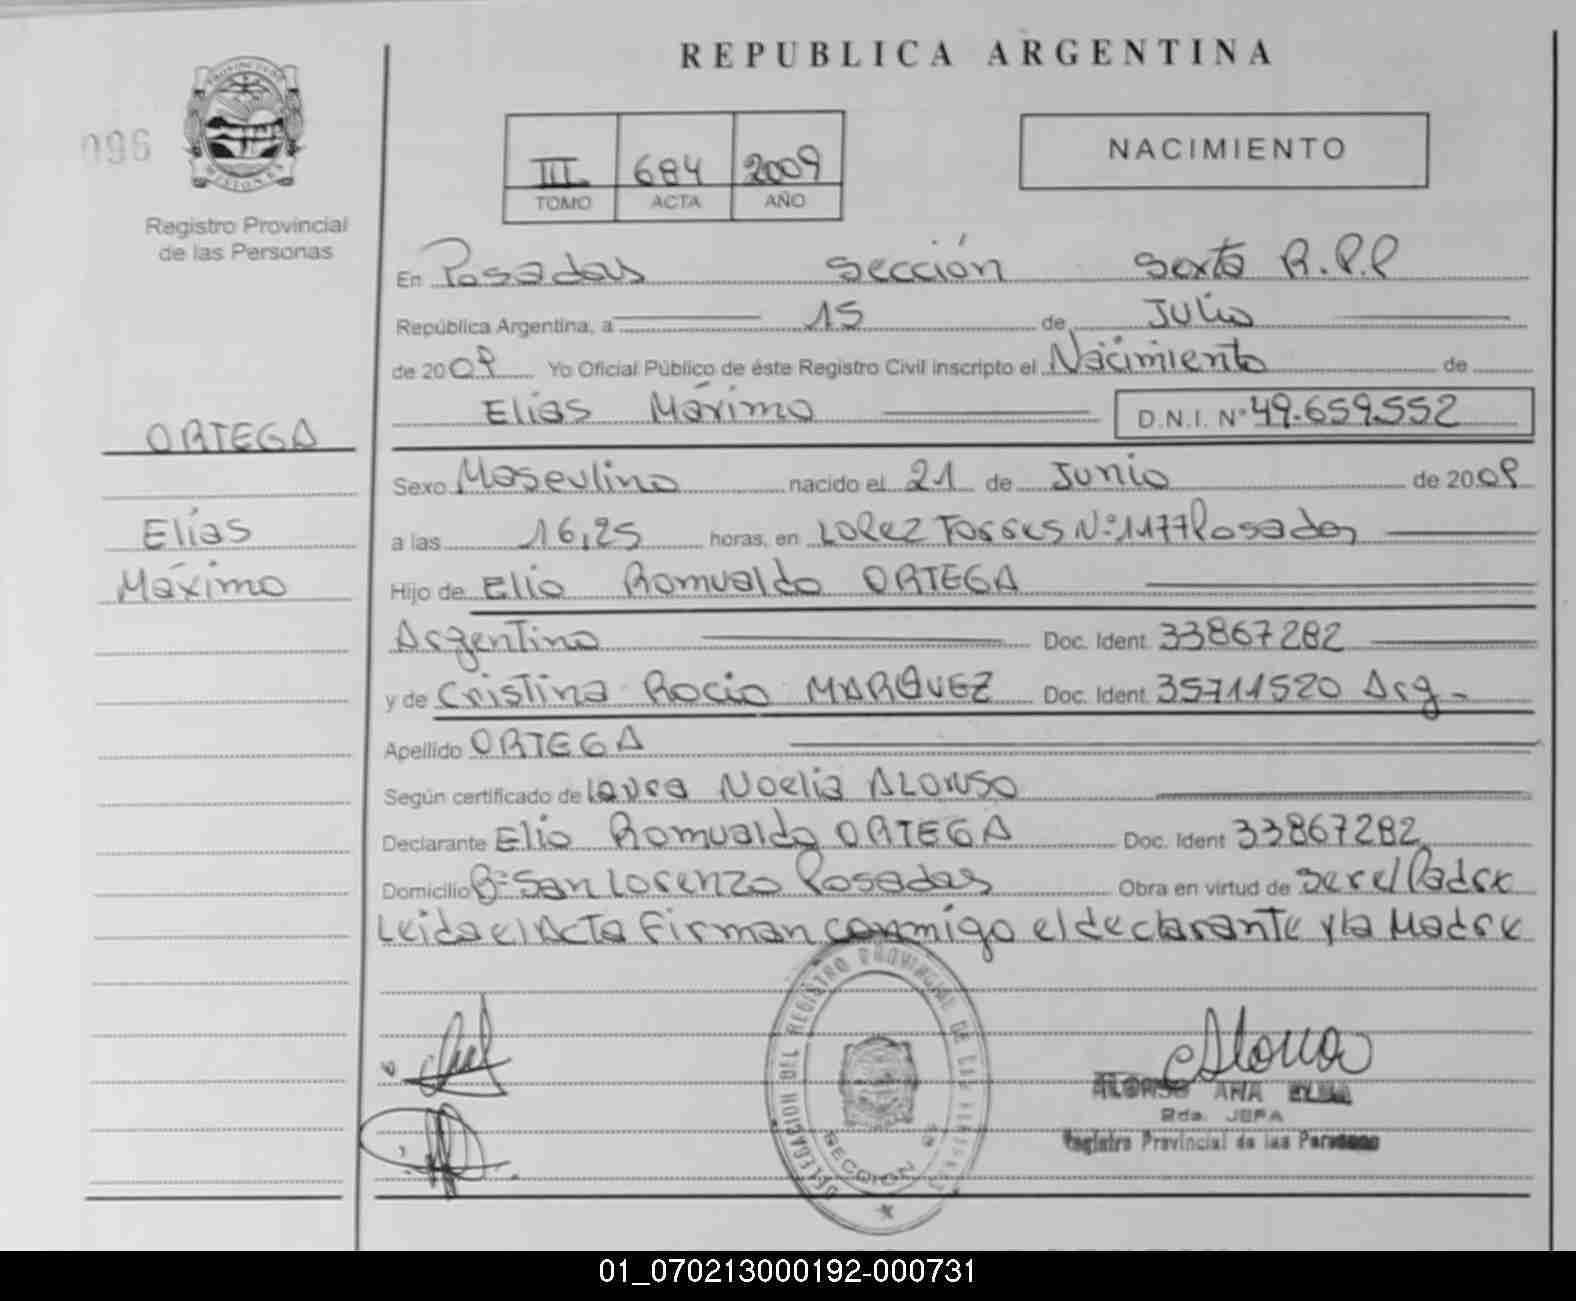 REPUBLICA ARGENTINA
096
PROVINCIA DE
MISIONES
Registro Provincial
de las Personas
III 684 2009
TOMO ACTA AÑO
NACIMIENTO
En Posadas Sección Sexta R.P.P
República Argentina, a 15 de Julio
de 2009 Yo Oficial Público de éste Registro Civil inscripto el Nacimiento de
Elías Máximo D.N.I. Nº 49.659.552
ORTEGA
Elías
Máximo
Sexo Masculino nacido el 21 de Junio de 2009
a las 16,25 horas, en LOPEZ TORRES Nº:1177 Posadas
Hijo de Elio Romualdo ORTEGA
Argentino Doc. Ident. 33867282
y de Cristina Rocio MARQUEZ Doc. Ident. 35711520 Arg-
Apellido ORTEGA
Según certificado de Laura Noelia ALONSO
Declarante Elio Romualdo ORTEGA Doc. Ident 33867282
Domicilio Bº San Lorenzo Posadas Obra en virtud de ser el Padre
Leida el Acta Firman conmigo el declarante y la Madre
DELEGACION DEL REGISTRO PROVINCIAL DE LAS PERSONAS
SECCION 6ª
ALONSO ANA
Rda. JEFA
Registro Provincial de las Personas
01_070213000192-000731